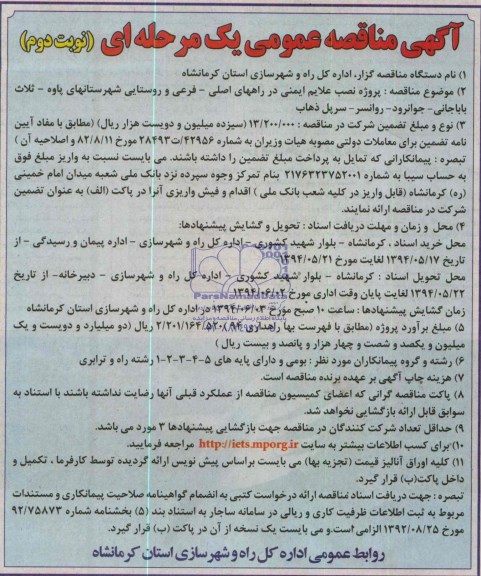 آگهی مناقصه عمومی یک مرحله ای (نوبت دوم)
۱) نام دستگاه مناقصه گزار، اداره کل راه و شهرسازی استان کرمانشاه
۲) موضوع مناقصه : پروژه نصب علایم ایمنی در راههای اصلی - فرعی و روستایی شهرستانهای پاوه - ثلاث
باباجانی- جوانرود- روانسر- سرپل ذهاب
۳) نوع و مبلغ تضمین شرکت در مناقصه : ۱۳/۲۰۰/۰۰۰ (سیزده میلیون و دویست هزار ریال) (مطابق با مفاد آیین
نامه تضمین برای معاملات دولتی مصوبه هیات وزیران به شماره ۴۲۹۵۶/ت۲۸۴۹۳ مورخ ۸۲/۸/۱۱ و اصلاحیه آن )
تبصره : پیمانکارانی که تمایل به پرداخت مبلغ تضمین را داشته باشند. می بایست نسبت به واریز مبلغ فوق
به حساب سیبا به شماره ۲۱۷۶۳۲۳۷۵۲۰۰۱ بنام تمرکز وجوه سپرده نزد بانک ملی شعبه میدان امام خمینی
(ره) کرمانشاه (قابل واریز در کلیه شعب بانک ملی ) اقدام و فیش واریزی آنرا در پاکت (الف) به عنوان تضمین
شرکت در مناقصه ارائه نمایند.
۴) محل و زمان و مهلت دریافت اسناد : تحویل و گشایش پیشنهادها:
محل خرید اسناد ، کرمانشاه - بلوار شهید کشوری - اداره کل راه و شهرسازی - اداره پیمان و رسیدگی - از
تاریخ ۱۳۹۴/۰۵/۱۷ لغایت مورخ ۱۳۹۴/۰۵/۲۱
محل تحویل اسناد : کرمانشاه - بلوار شهید کشوری - اداره کل راه و شهرسازی - دبیرخانه- از تاریخ
۱۳۹۴/۰۵/۲۲ لغایت پایان وقت اداری مورخ ۱۳۹۴/۰۶/۰۲
زمان گشایش پیشنهادها : ساعت ۱۰ صبح مورخ ۱۳۹۴/۰۶/۰۳ در اداره کل راه و شهرسازی استان کرمانشاه
۵) مبلغ برآورد پروژه (مطابق با فهرست بها راهداری ۹۴) ۲/۲۰۱/۱۶۴/۵۲۰ ریال (دو میلیارد و دویست و یک
میلیون و یکصد و شصت و چهار هزار و پانصد و بیست ریال )
۶) رشته و گروه پیمانکاران مورد نظر : بومی و دارای پایه های ۵-۴-۳-۲-۱ رشته راه و ترابری
۷) هزینه چاپ آگهی بر عهده برنده مناقصه است.
۸) پاکت مناقصه گرانی که اعضای کمیسیون مناقصه از عملکرد قبلی آنها رضایت نداشته باشند با استناد به
سوابق قابل ارائه بازگشایی نخواهد شد.
۹) حداقل تعداد شرکت کنندگان در مناقصه جهت بازگشایی پیشنهادها ۳ مورد می باشد.
۱۰) برای کسب اطلاعات بیشتر به سایت http://iets.mporg.ir مراجعه فرمایید.
۱۱) کلیه اوراق آنالیز قیمت (تجزیه بها) می بایست براساس پیش نویس ارائه گردیده توسط کارفرما ، تکمیل و
داخل پاکت(ب) قرار گیرد.
تبصره : جهت دریافت اسناد مناقصه ارائه درخواست کتبی به انضمام گواهینامه صلاحیت پیمانکاری و مستندات
مربوط به ثبت اطلاعات ظرفیت کاری و ریالی در سامانه ساجار به استناد بند (۵) بخشنامه شماره ۹۲/۷۵۸۷۳
مورخ ۱۳۹۲/۰۸/۲۵ الزامی است.و می بایست یک نسخه از آن در پاکت (ب) قرار گیرد.
روابط عمومی اداره کل راه و شهرسازی استان کرمانشاه